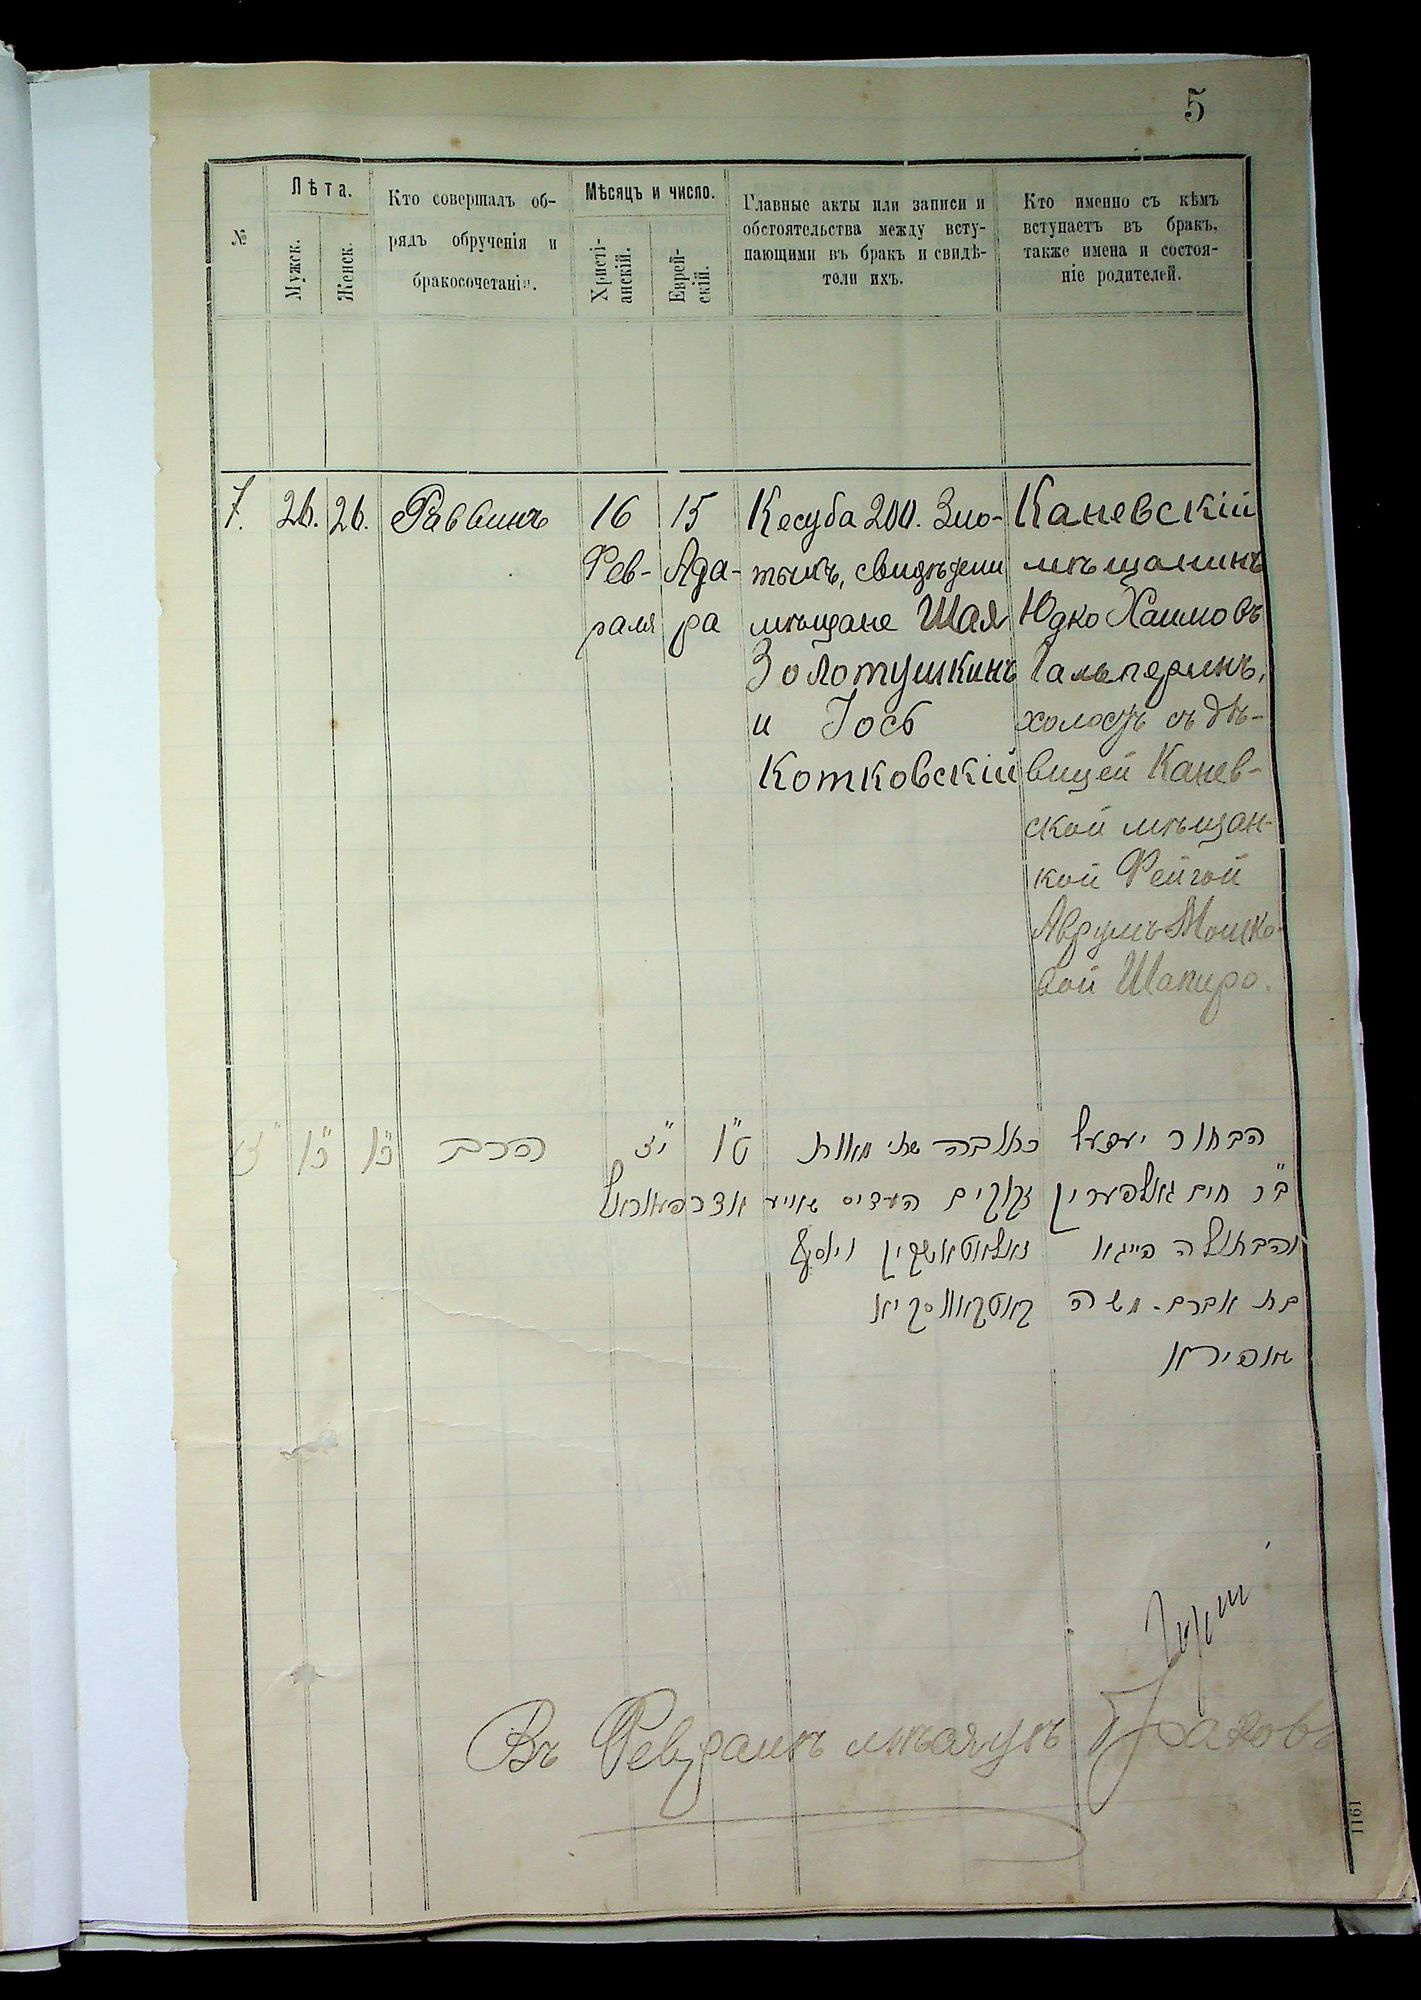 5
№
Лѣта.
Мужск.
Женск.
Кто совершалъ об-
рядъ обрученія и
бракосочетанія.
Мѣсяцъ и число.
Христі-
анскій.
Еврей-
скій.
Главные акты или записи и
обстоятельства между всту-
пающими въ бракъ и свидѣ-
тели ихъ.
Кто именно съ кѣмъ
вступаетъ въ бракъ,
также имена и состоя-
ніе родителей.
7.
26.
26.
Раввинъ
16
Фев-
раля
15
Ада-
ра
Кесуба 200. Зло-
тыхъ, свидѣтели
мѣщане Шая
Золотушкинъ
и Іось
Котковскій
Каневскій
мѣщанинъ
Юдко Хаимовъ
Гальперинъ,
холостъ съ дѣ-
вицей Канев-
ской мѣщан-
кой Фейгой
Аврумъ-Мошко-
вой Шапиро.
הבחור
ב"ר חים גאלפערין
והבתולה פייגא
בת אברם משה
שאפירא
כתובה שתי מאות
זקוקים העדים שאיע
זאלאטאשקין ויוסף
קאטקאווסקיא
ט"ו
הרב
כ"ו
כ"ו
Въ Февралѣ мѣсяцѣ браковъ
1161